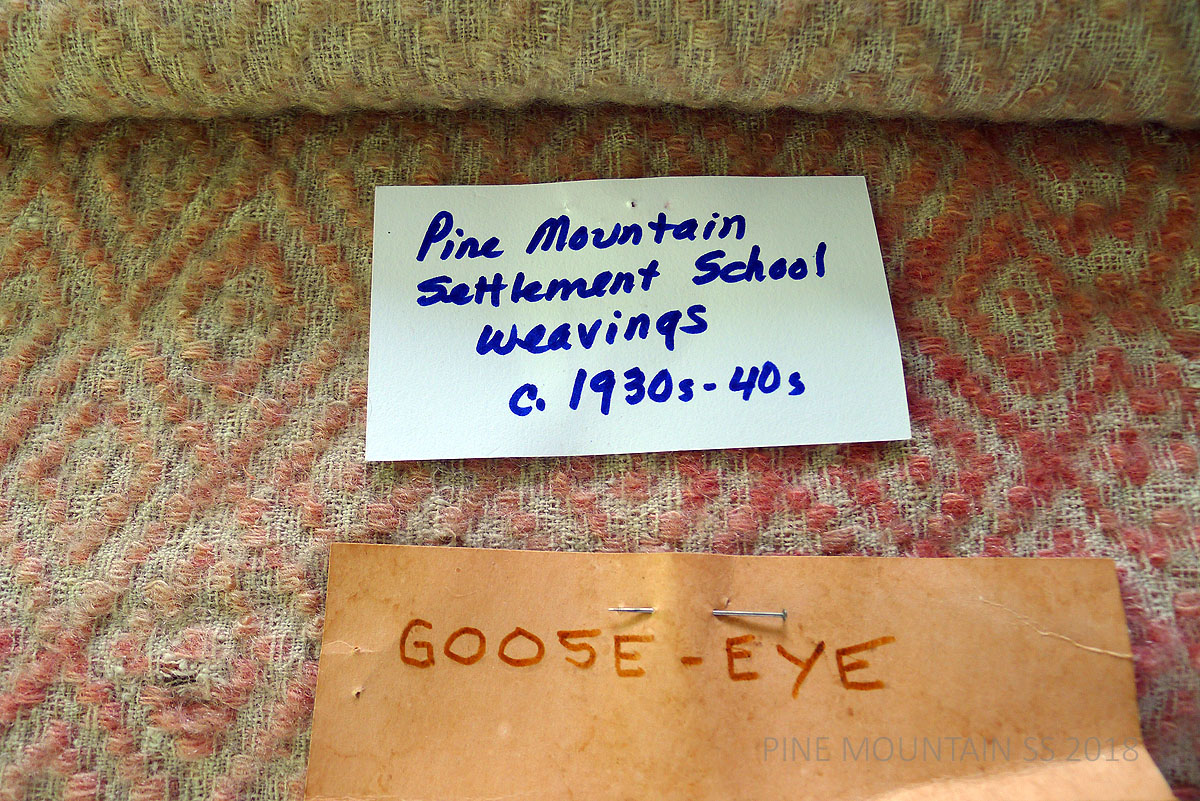 Pine Mountain
Settlement School
Weavings
c. 1930s-40s
GOOSE-EYE
PINE MOUNTAIN SS 2018